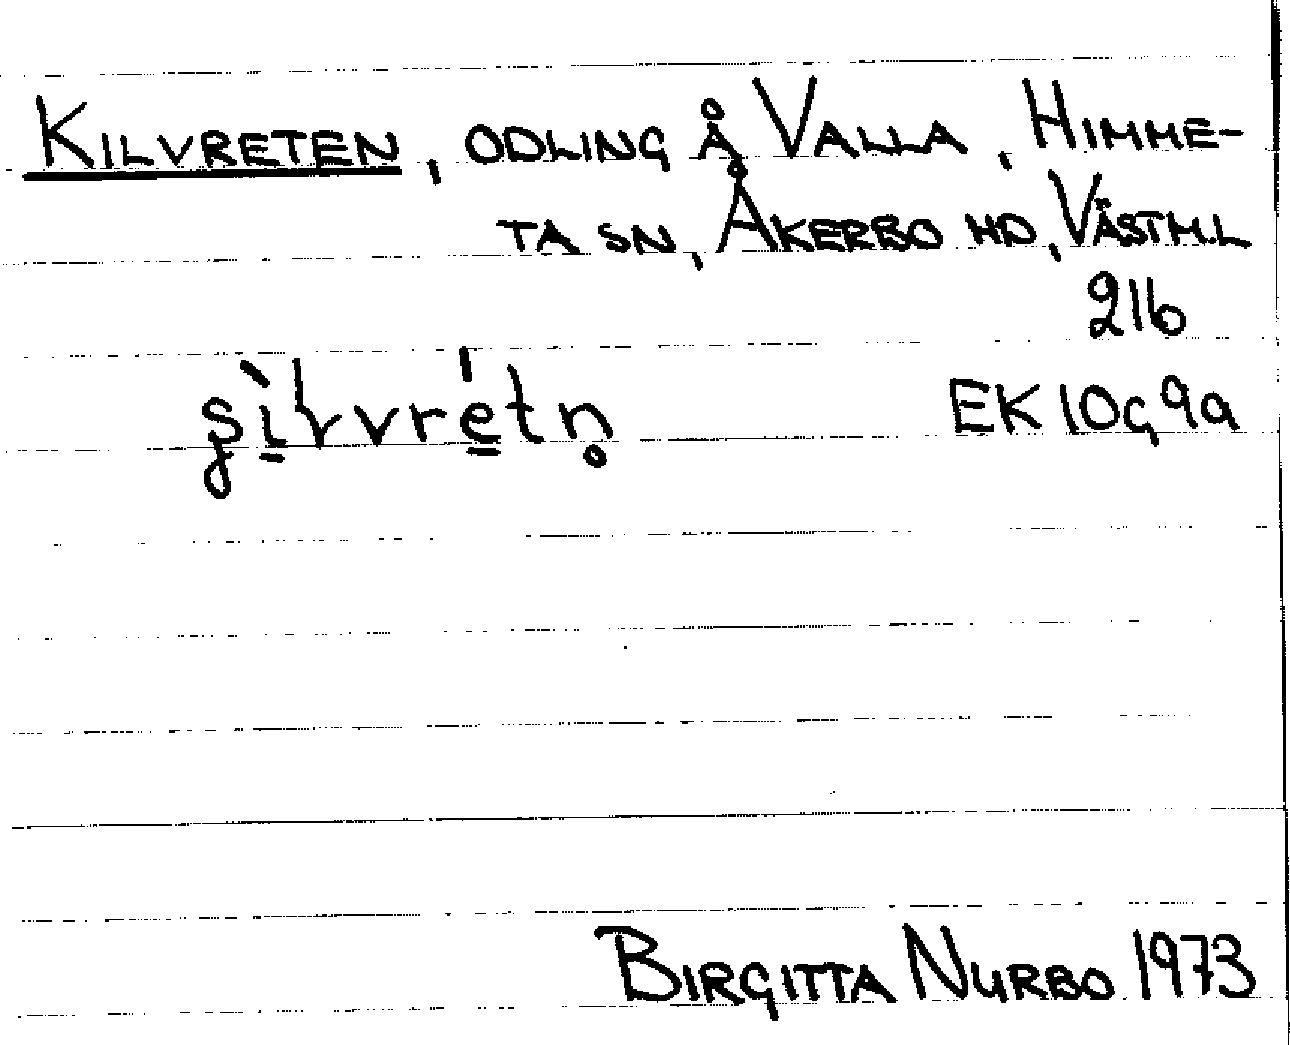 KILVRETEN, ODLING Å VALLA, HIMME-
TA SN, ÅKERBO HD, VÄSTM.L
216
EK 10G 9a
BIRGITTA NURBO 1973